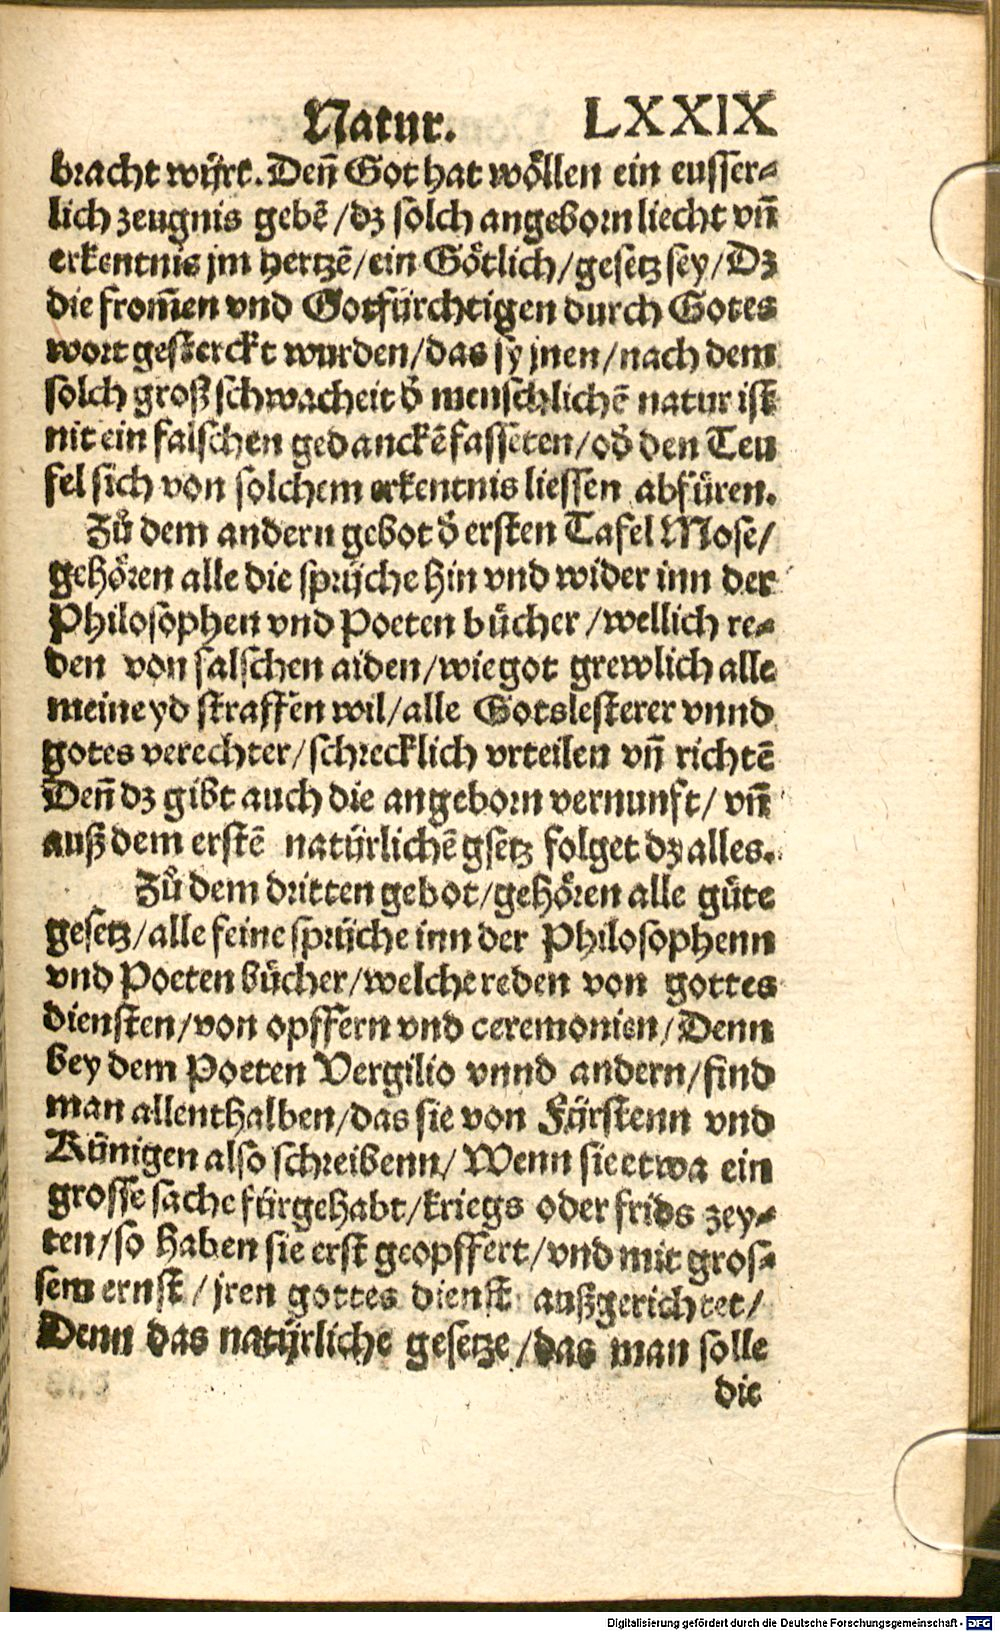 Natur. LXXIX
bracht wÿrt. Deñ Got hat wöllen ein eusser-
lich zeugnis gebē /dz solch angeborn liecht vñ
erkentnis jm hertzē/ein Götlich/gesetz sey/Dz
die from̃en vnd Gotfürchtigen durch Gotes
wort gesterckt wurden/das sy jnen/nach dem
solch groß schwacheit d̓ menschlichē natur ist
nit ein falschen gedanckē fasseten/od̓ den Teu
fel sich von solchem erkentnis liessen abfüren.
Zů dem andern gebot d̓ ersten Tafel Mose/
gehören alle die sprüche hin vnd wider inn der
Philosophen vnd Poeten bücher /wellich re-
den von falschen aiden/wie got grewlich alle
meineyd straffen wil/alle Gotslesterer vnnd
gotes verechter/schrecklich vrteilen vñ richtē
Deñ dz gibt auch die angeborn vernunft/ vñ
auß dem erstē natürlichē gsetz folget dz alles.
Zů dem dritten gebot/gehören alle güte
gesetz/alle feine sprüche inn der Philosophenn
vnd Poeten bücher/welche reden von gottes
diensten/von opffern vnd ceremonien/Denn
bey dem Poeten Vergilio vnnd andern/find
man allenthalben/das sie von Fürstenn vnd
Künigen also schreibenn/ Wenn sie etwa ein
grosse sache fürgehabt/kriegs oder frids zey-
ten/so haben sie erst geopffert/vnd mit gros-
sem ernst /jren gottes dienst außgerichtet/
Denn das natürliche gesetze /das man solle
die
Digitalisierung gefördert durch die Deutsche Forschungsgemeinschaft - DFG